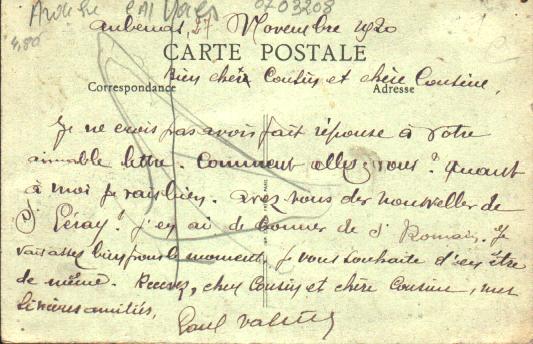 0703208
4,80
Aubenas, 27 Novembre 1920
CARTE POSTALE
Bien chers Cousin et chère Cousine,
Correspondance Adresse
Je ne crois pas avoir fait réponse à votre
aimable lettre. Comment allez, vous? Quant
à moi je vais bien. avez vous des nouvelles de
St. Péray? j'en ai de bonnes de St Romain. Je
vais assez bien pour le moment, je vous souhaite d'en être
de même. Recevez, chers Cousin et chère Cousine, mes
Sincères amitiés,
Paul